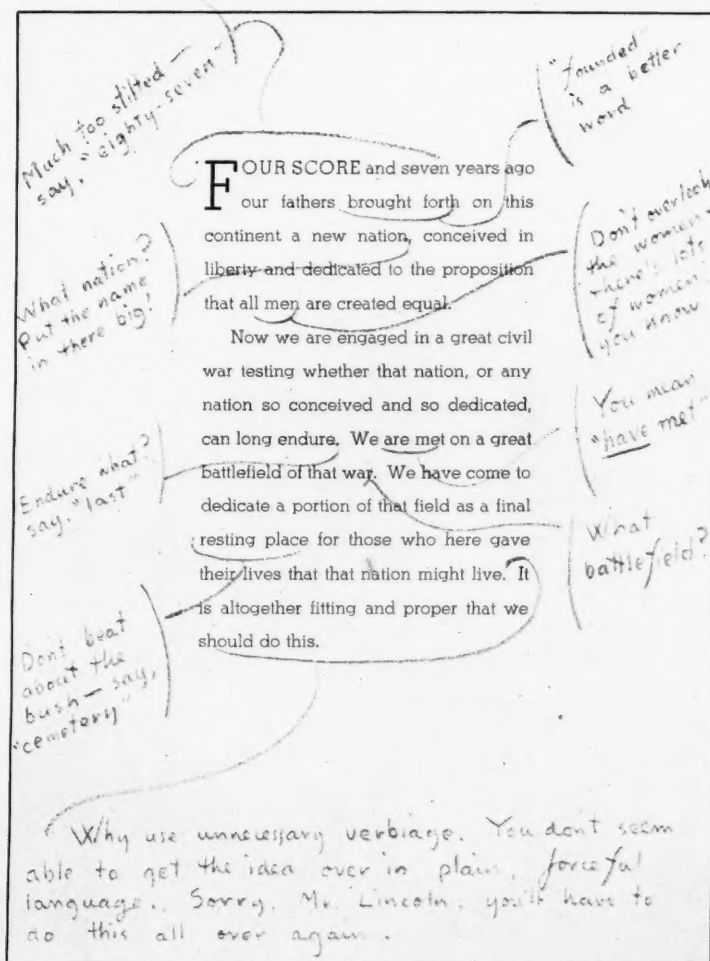 Much too stilted—
say, "eighty-seven"
"founded"
is a better
word
FOUR SCORE and seven years ago
our fathers brought forth on this
continent a new nation, conceived in
liberty and dedicated to the proposition
that all men are created equal.
What nation?
Put the name
in there big!
Don't overlook
the women—
there's lots
of women,
you know
Now we are engaged in a great civil
war testing whether that nation, or any
nation so conceived and so dedicated,
can long endure. We are met on a great
battlefield of that war. We have come to
dedicate a portion of that field as a final
resting place for those who here gave
their lives that that nation might live. It
is altogether fitting and proper that we
should do this.
You mean
"have met"
Endure what?
say, "last"
What
battlefield?
Dont beat
about the
bush— say,
"cemetery"
Why use unnecessary verbiage. You dont seem
able to get the idea over in plain, forceful
language. Sorry, Mr. Lincoln, you'll have to
do this all over again.